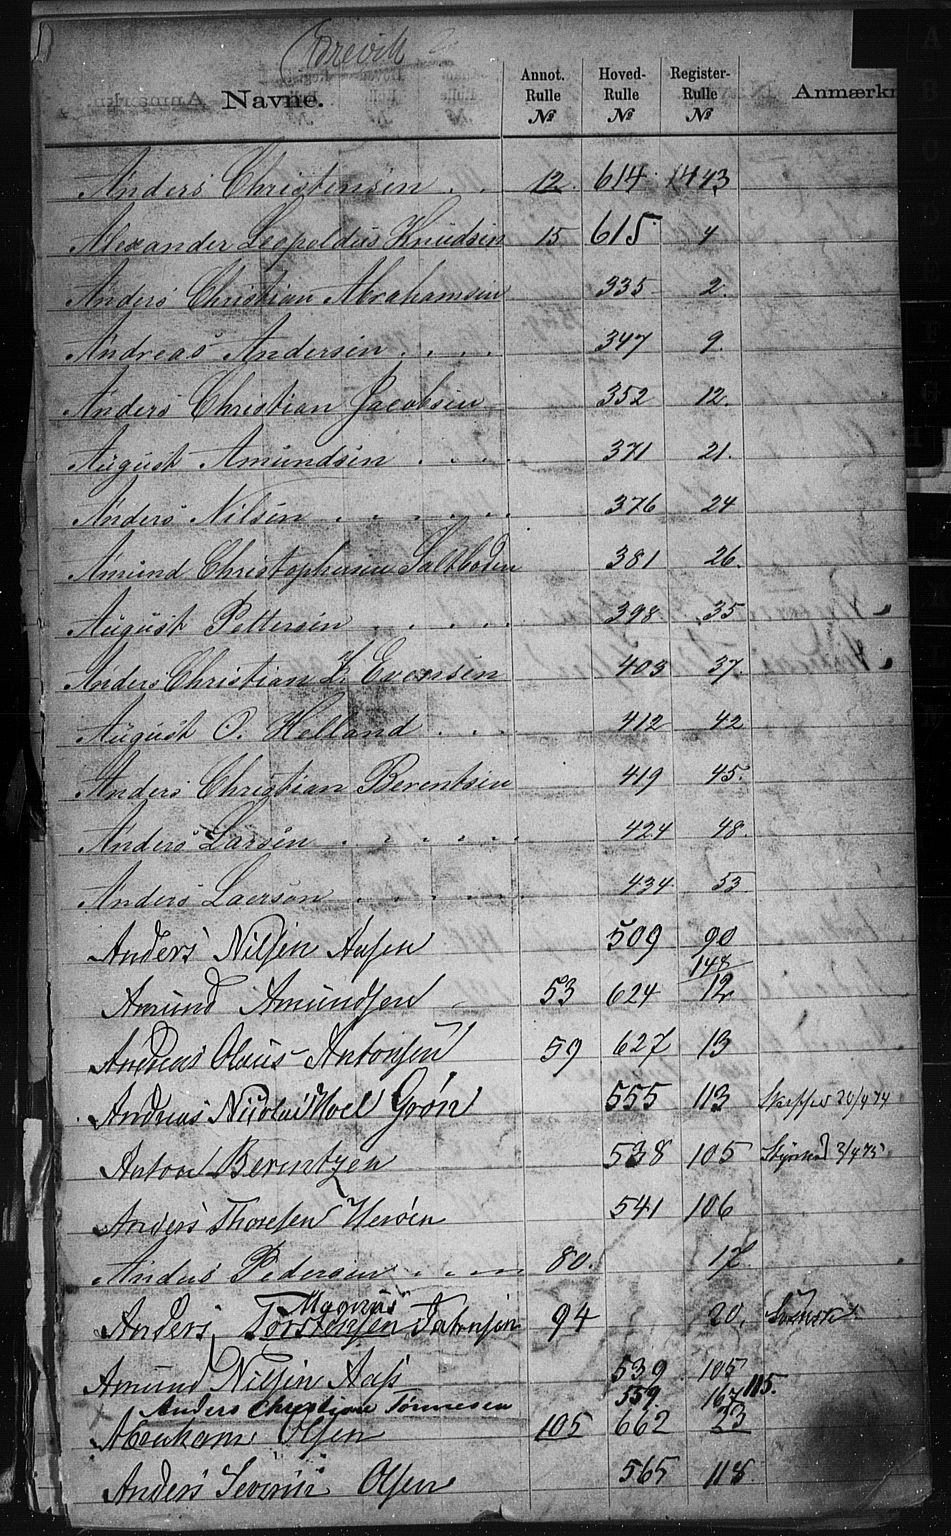 1)
Brevik
Navne.
Annot. Rulle №
Hoved- Rulle №
Register- Rulle №
Anmærkn
Anders Christensen . . 12. 614. 1443
Alexander Leopoldus Knudsen 15 615 4
Anders Christian Abrahamsen 335 2.
Andreas Andersen . . . . 347 9.
Anders Christian Jacobsen 352 12.
August Amundsen . . . . 371 21.
Anders Nilsen . . . . . . 376 24
Amund Christophersen Saltboden 381 26.
August Pettersen . . . . . 398 35
Anders Christian K. Evensen 403 37.
August O. Helland . . . 412 42
Anders Christian Berentsen 419 45.
Anders Larsen . . . . . . 424 48.
Anders Laerson . . . . . . 434 53
Anders Nilsen Aasen 509 90
148
Amund Amundsen 53 624 12
Andreas Olaus Antonsen 59 627 13
Andreas Nicolai Moel Grøn 555 113 Skipper 20/4 74
Anton Berentzen 538 105 Styrmd 3/4 75
Anders Thoresen Herøen 541 106
Anders Pedersen . . . . 80. 17.
Magnus
Anders Torstensen 94 20.
Amund Nilsen Aas 539 105
Anders Christian Tønnesen 559. 167 115.
Abraham Olsen 105 662 23
Anders Severin Olsen 565 118